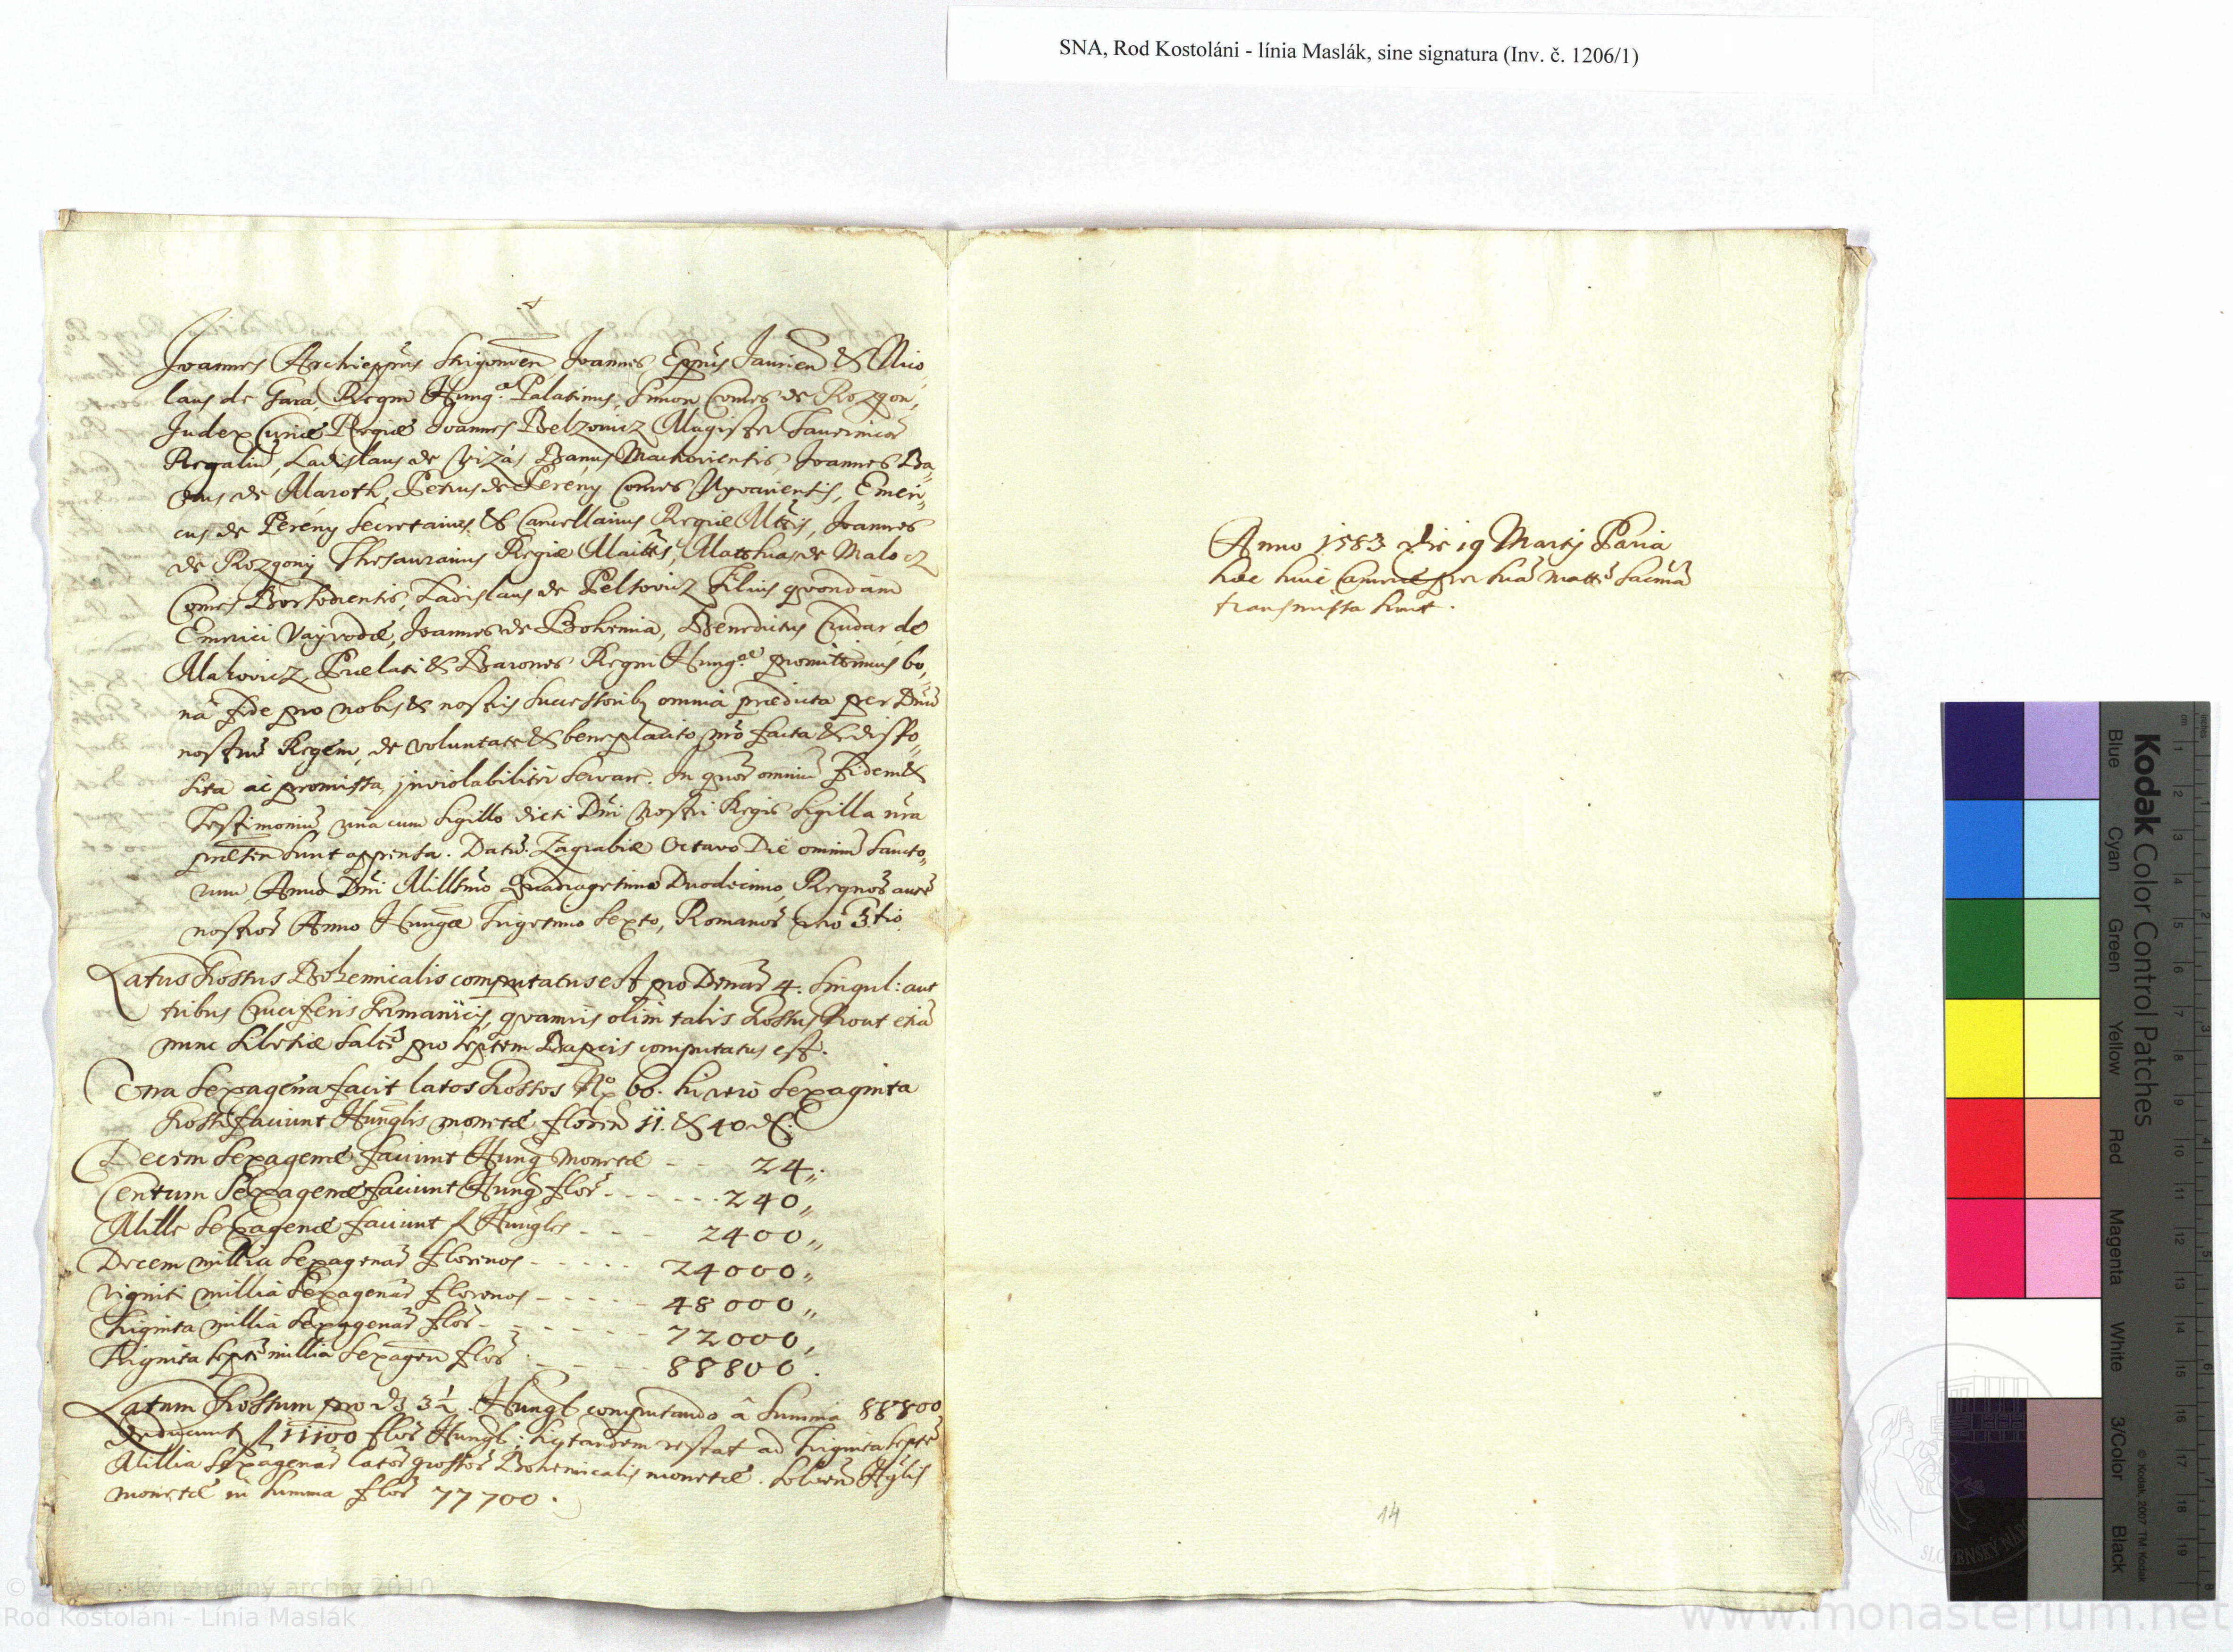 SNA, Rod Kostoláni - línia Maslák, sine signatura (Inv. č. 1206/1)
Joannes Archieppus Strigonien Joannes Eppus Jaurien & Nico,,
laus de Gara, Regni Hungae Palatinus, Simon Comes de Rozgon,
Judex Curiae Regiae Joannes Pelzonicz Magister Tavernicor
Regaliu, Ladislaus de Vizás Banus Machoviensis, Joannes Ba,,
nus de Maroth, Petrus de Pereny Comes Ugovariensis, Emeri,,
cus de Perény Secretarius & Cancellarius Regiae Mttis, Joannes
de Rozgony Thesaurarius Regiae Maittis, Matthias de Malo
Comes Borsodiensis, Ladislaus de Peltovicz Filius quondam
Emerici Vayvodae, Joannes de Bohemia, Benedictus Cudar de
Makovicz, Praelati & Barones Regni Hungae promittimus bo,,
nâ fide pro nobis & nostris Successoribq omnia praedicta per Dnu
nostru Regem, de voluntate & beneplacito nro facta & dispo,,
sita ac promissa, inviolabiliter servare. In quor omniu Fidem &
Testimoniu unà cum Sigillo dicti Dni nostri Regis Sigilla nra
praesen sunt appensa. Datu Zagrabiae Octavo Die omniu Sancto,,
rum, Anno Dni Millmo Quadragesimo Duodecimo, Regnor aute
nostror Anno Hungae Trigesimo Sexto, Romanor vero 3tio
Latus Grossus Bohemicalis computatus est pro Denar 4. Singul: aut
tribus Cruciferis Germanicis, quamvis olim talis Grossus prout etia
nunc Silesiae Salte pro septem Bapcis computatus est.
Una Sexagena facit latos Grossos No 60. hi vero Sexaginta
Grossi faciunt Hunglis monetae, floren ii. & 40 d.
Decem Sexagenae faciunt Hung monetae - - 24,,
Centum Sexagenae faciunt Hung flor - - - - - 240,,
Mille Sexagenae faciunt fl Hungles - - - 2400,,
Decem millia Sexagenar florenos - - - - - 24000,,
Viginti millia Sexagenar florenos - - - - - 48000,,
Triginta millia Sexagenar flor - - - - - - 72000,
Triginta septe millia Sexagen flor - - - - 88800.
Latum Grossum pro d 3 1/2. Hungl computando â Summa 88800
deducunt fl 11100 flor Hungl: sic tandem restat ad Triginta Septe
Millia Sexagenar lator grossor Bohemicalis monetae. Solven Hglis
monetae in Summa flor 77700.
Anno 1583 die 19 Martij Paria
hae huic Camerae per Sua Matte Sacrma
transmissa sunt.
14
Kodak Color Control Patches
Blue Cyan Green Yellow Red Magenta White 3/Color Black
© Kodak, 2007 TM: Kodak
inches 1 2 3 4 5 6 7 8
cm 1 2 3 4 5 6 7 8 9 10 11 12 13 14 15 16 17 18 19
© Slovenský národný archív 2010
Rod Kostoláni - Línia Maslák
SLOVENSKÝ NÁR
www.monasterium.net